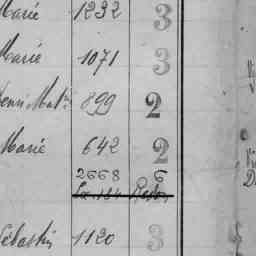 Marié 1232 3
Marié 1071 3
899 2
Marié 642 2
2668 6
Sébastien 1120 3